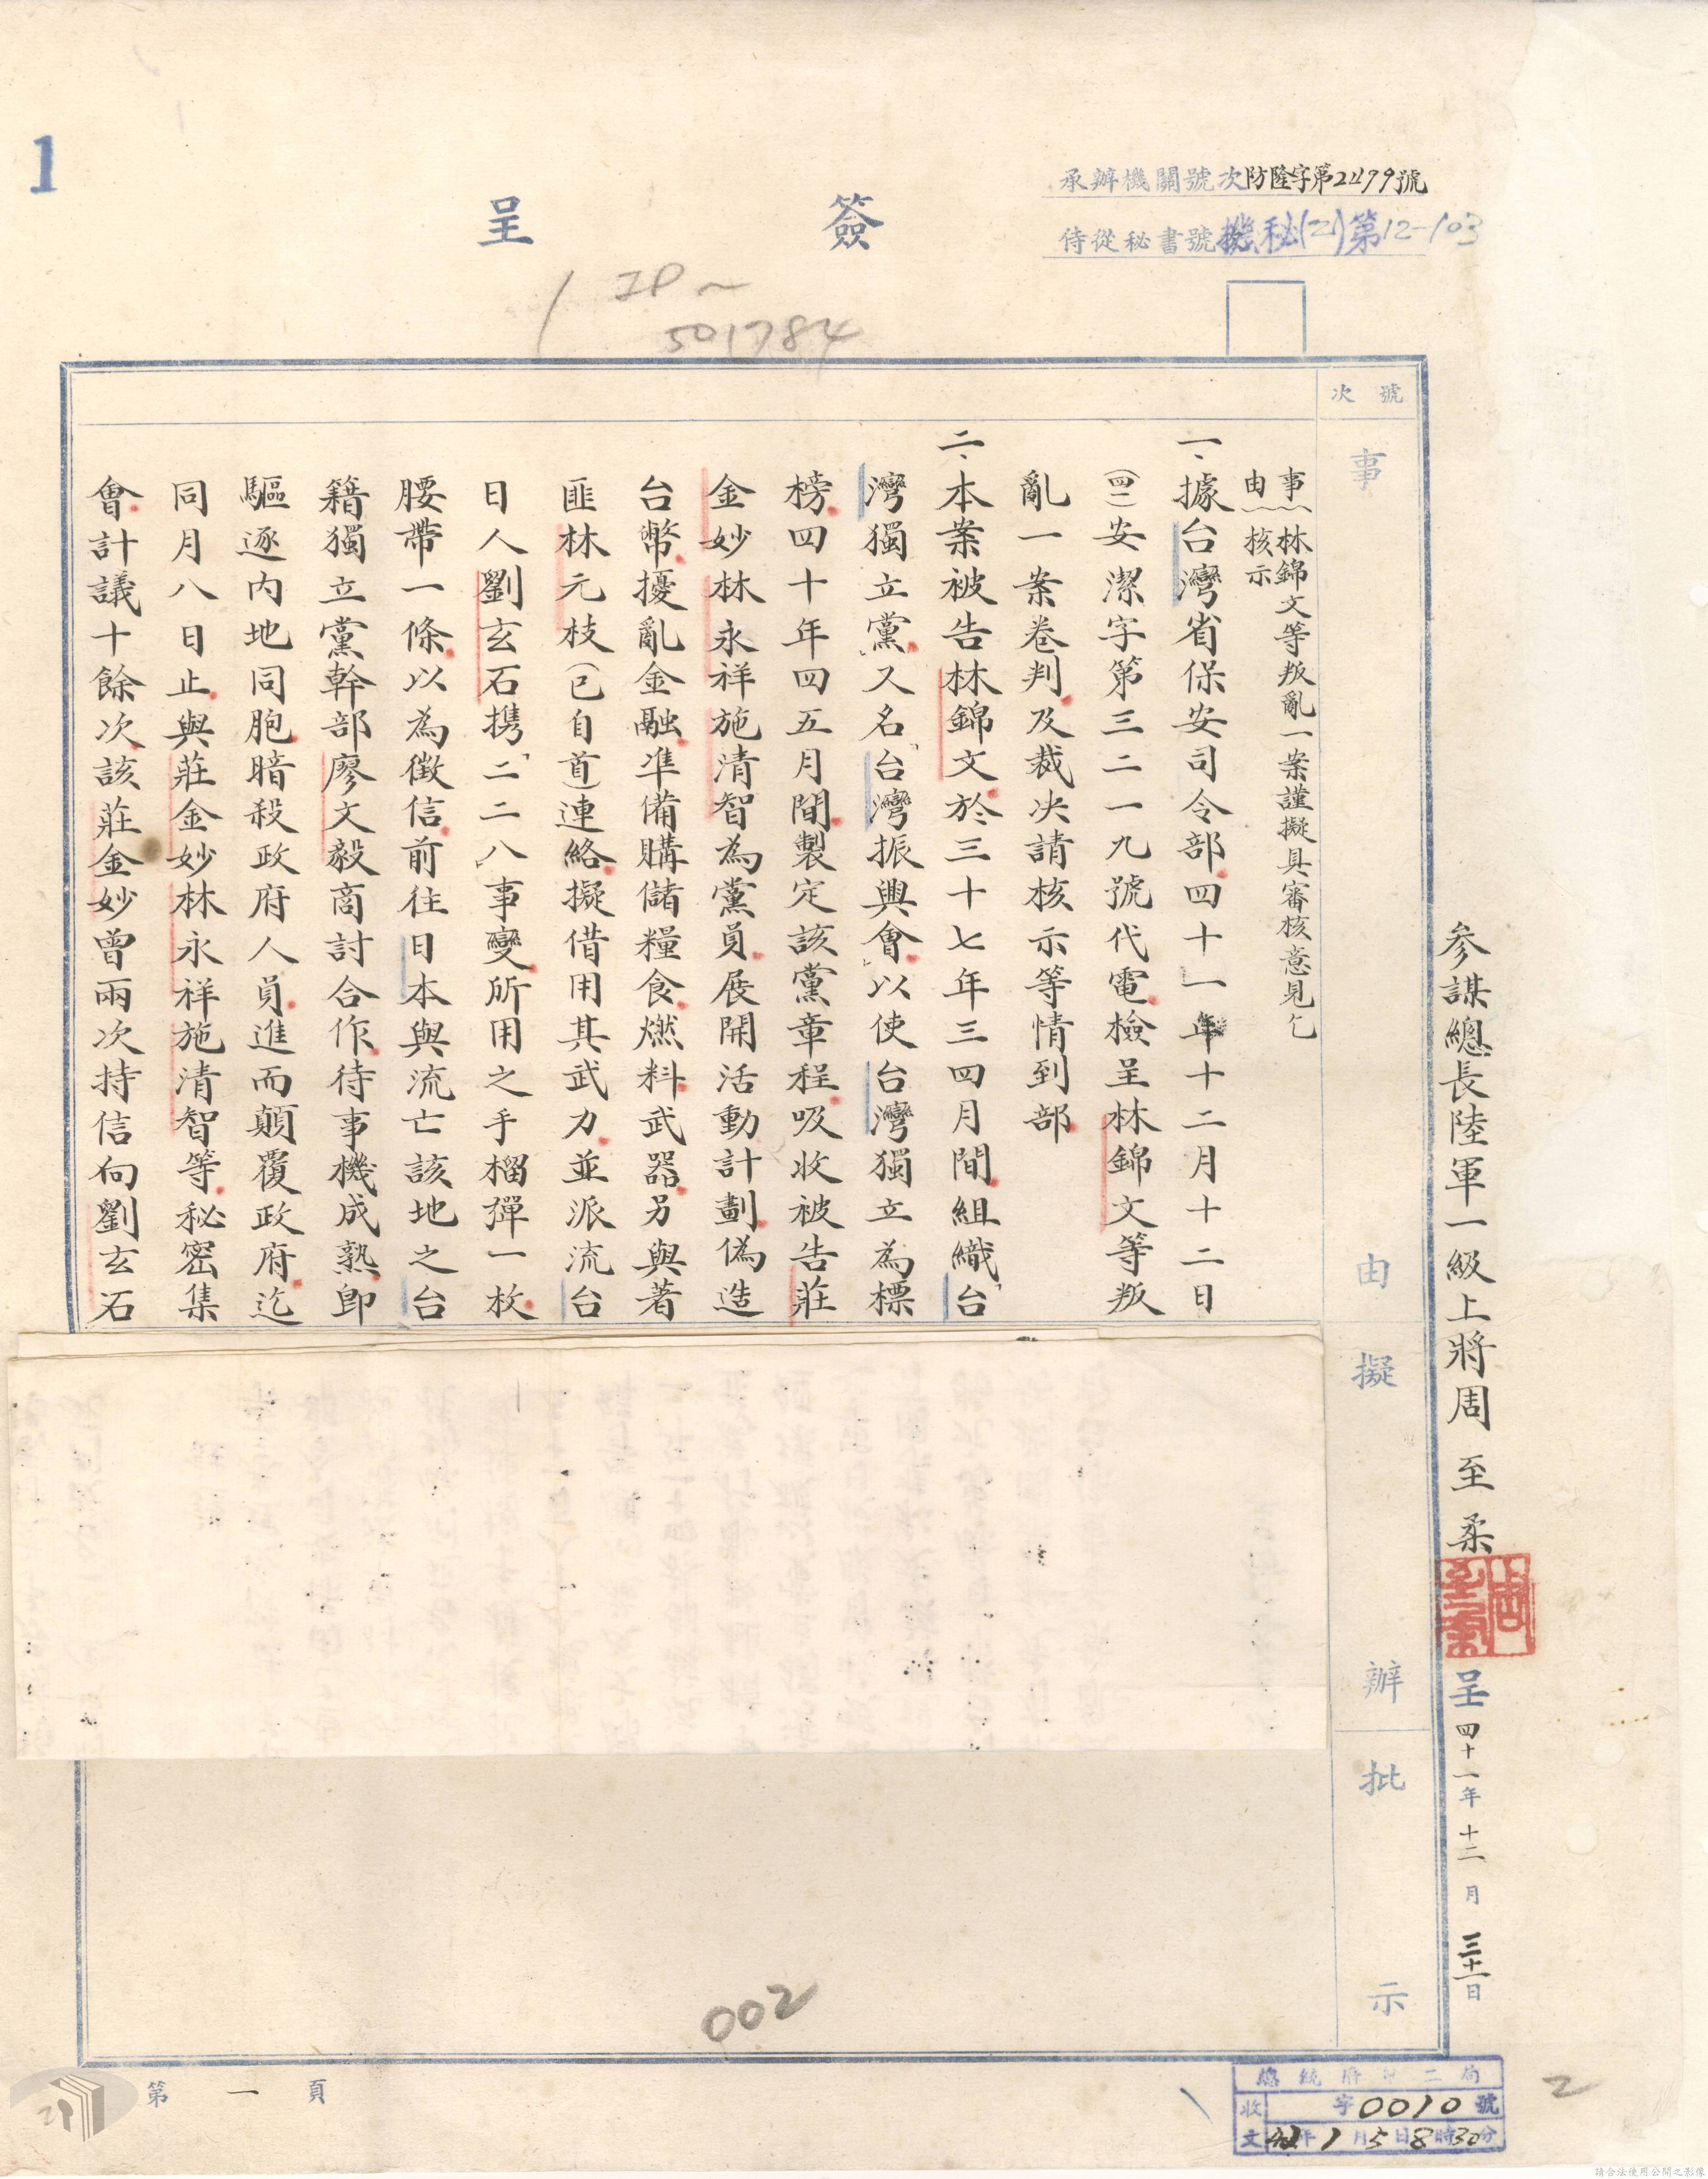 1
簽呈
承辦機關號次防隆字第2479號
侍從秘書號機秘(乙)第12-103
501784
號次
事由
擬辦
批示
參謀總長陸軍一級上將周至柔
呈四十一年十二月三十一日
事由 林錦文等叛亂一案謹擬具審核意見乞
核示
一、據台灣省保安司令部四十一年十二月十二日
(四一)安潔字第三二一九號代電檢呈林錦文等叛
亂一案卷判及裁決請核示等情到部
二、本案被告林錦文於三十七年三四月間組織「台
灣獨立黨」又名「台灣振興會」以使台灣獨立為標
榜四十年四五月間製定該黨章程吸收被告莊
金妙林永祥施清智為黨員展開活動計劃偽造
台幣擾亂金融準備購儲糧食燃料武器另與著
匪林元枝(已自首)連絡擬借用其武力並派流台
日人劉玄石携「二二八」事變所用之手榴彈一枚
腰帶一條以為徵信前往日本與流亡該地之台
籍獨立黨幹部廖文毅商討合作待事機成熟即
驅逐内地同胞暗殺政府人員進而顛覆政府迄
同月八日止與莊金妙林永祥施清智等秘密集
會計議十餘次該莊金妙曾兩次持信向劉玄石
002
第一頁
總統府第二局
收文 字0010號
42年1月5日8時30分
2
請合法使用公開之影像